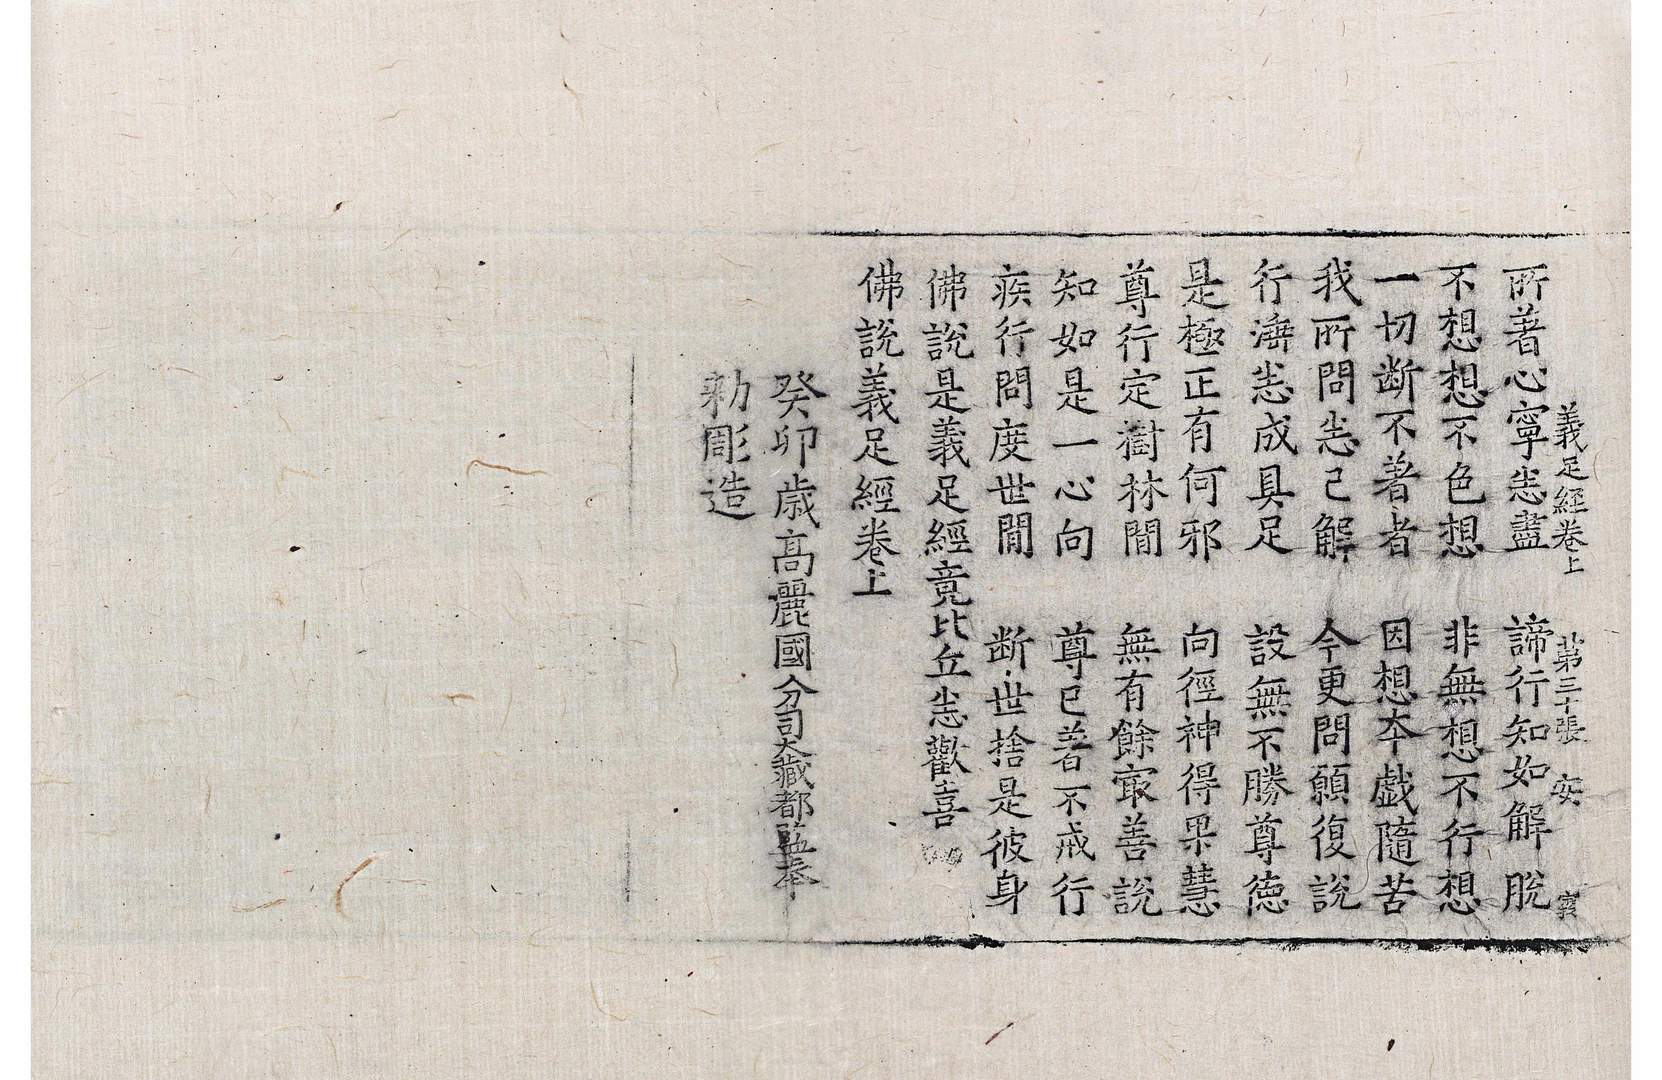 義足經卷上 第三十張 安 寞
所著心寧恙盡 諦行知如解脫
不想想不色想 非無想不行想
一切断不著者 因想夲戱隨苦
我所問恙已解 今更問願復說
行渧恙成具足 設無不勝尊德
是極正有何邪 向徑神得果慧
尊行定樹林間 無有餘㝡善說
知如是一心向 尊已著不戒行
疾行問度世間 断世捨是彼身
佛說是義足經竟比丘恙歡喜
佛說義足經卷上
癸卯歳高麗國分司大藏都監奉
勑彫造